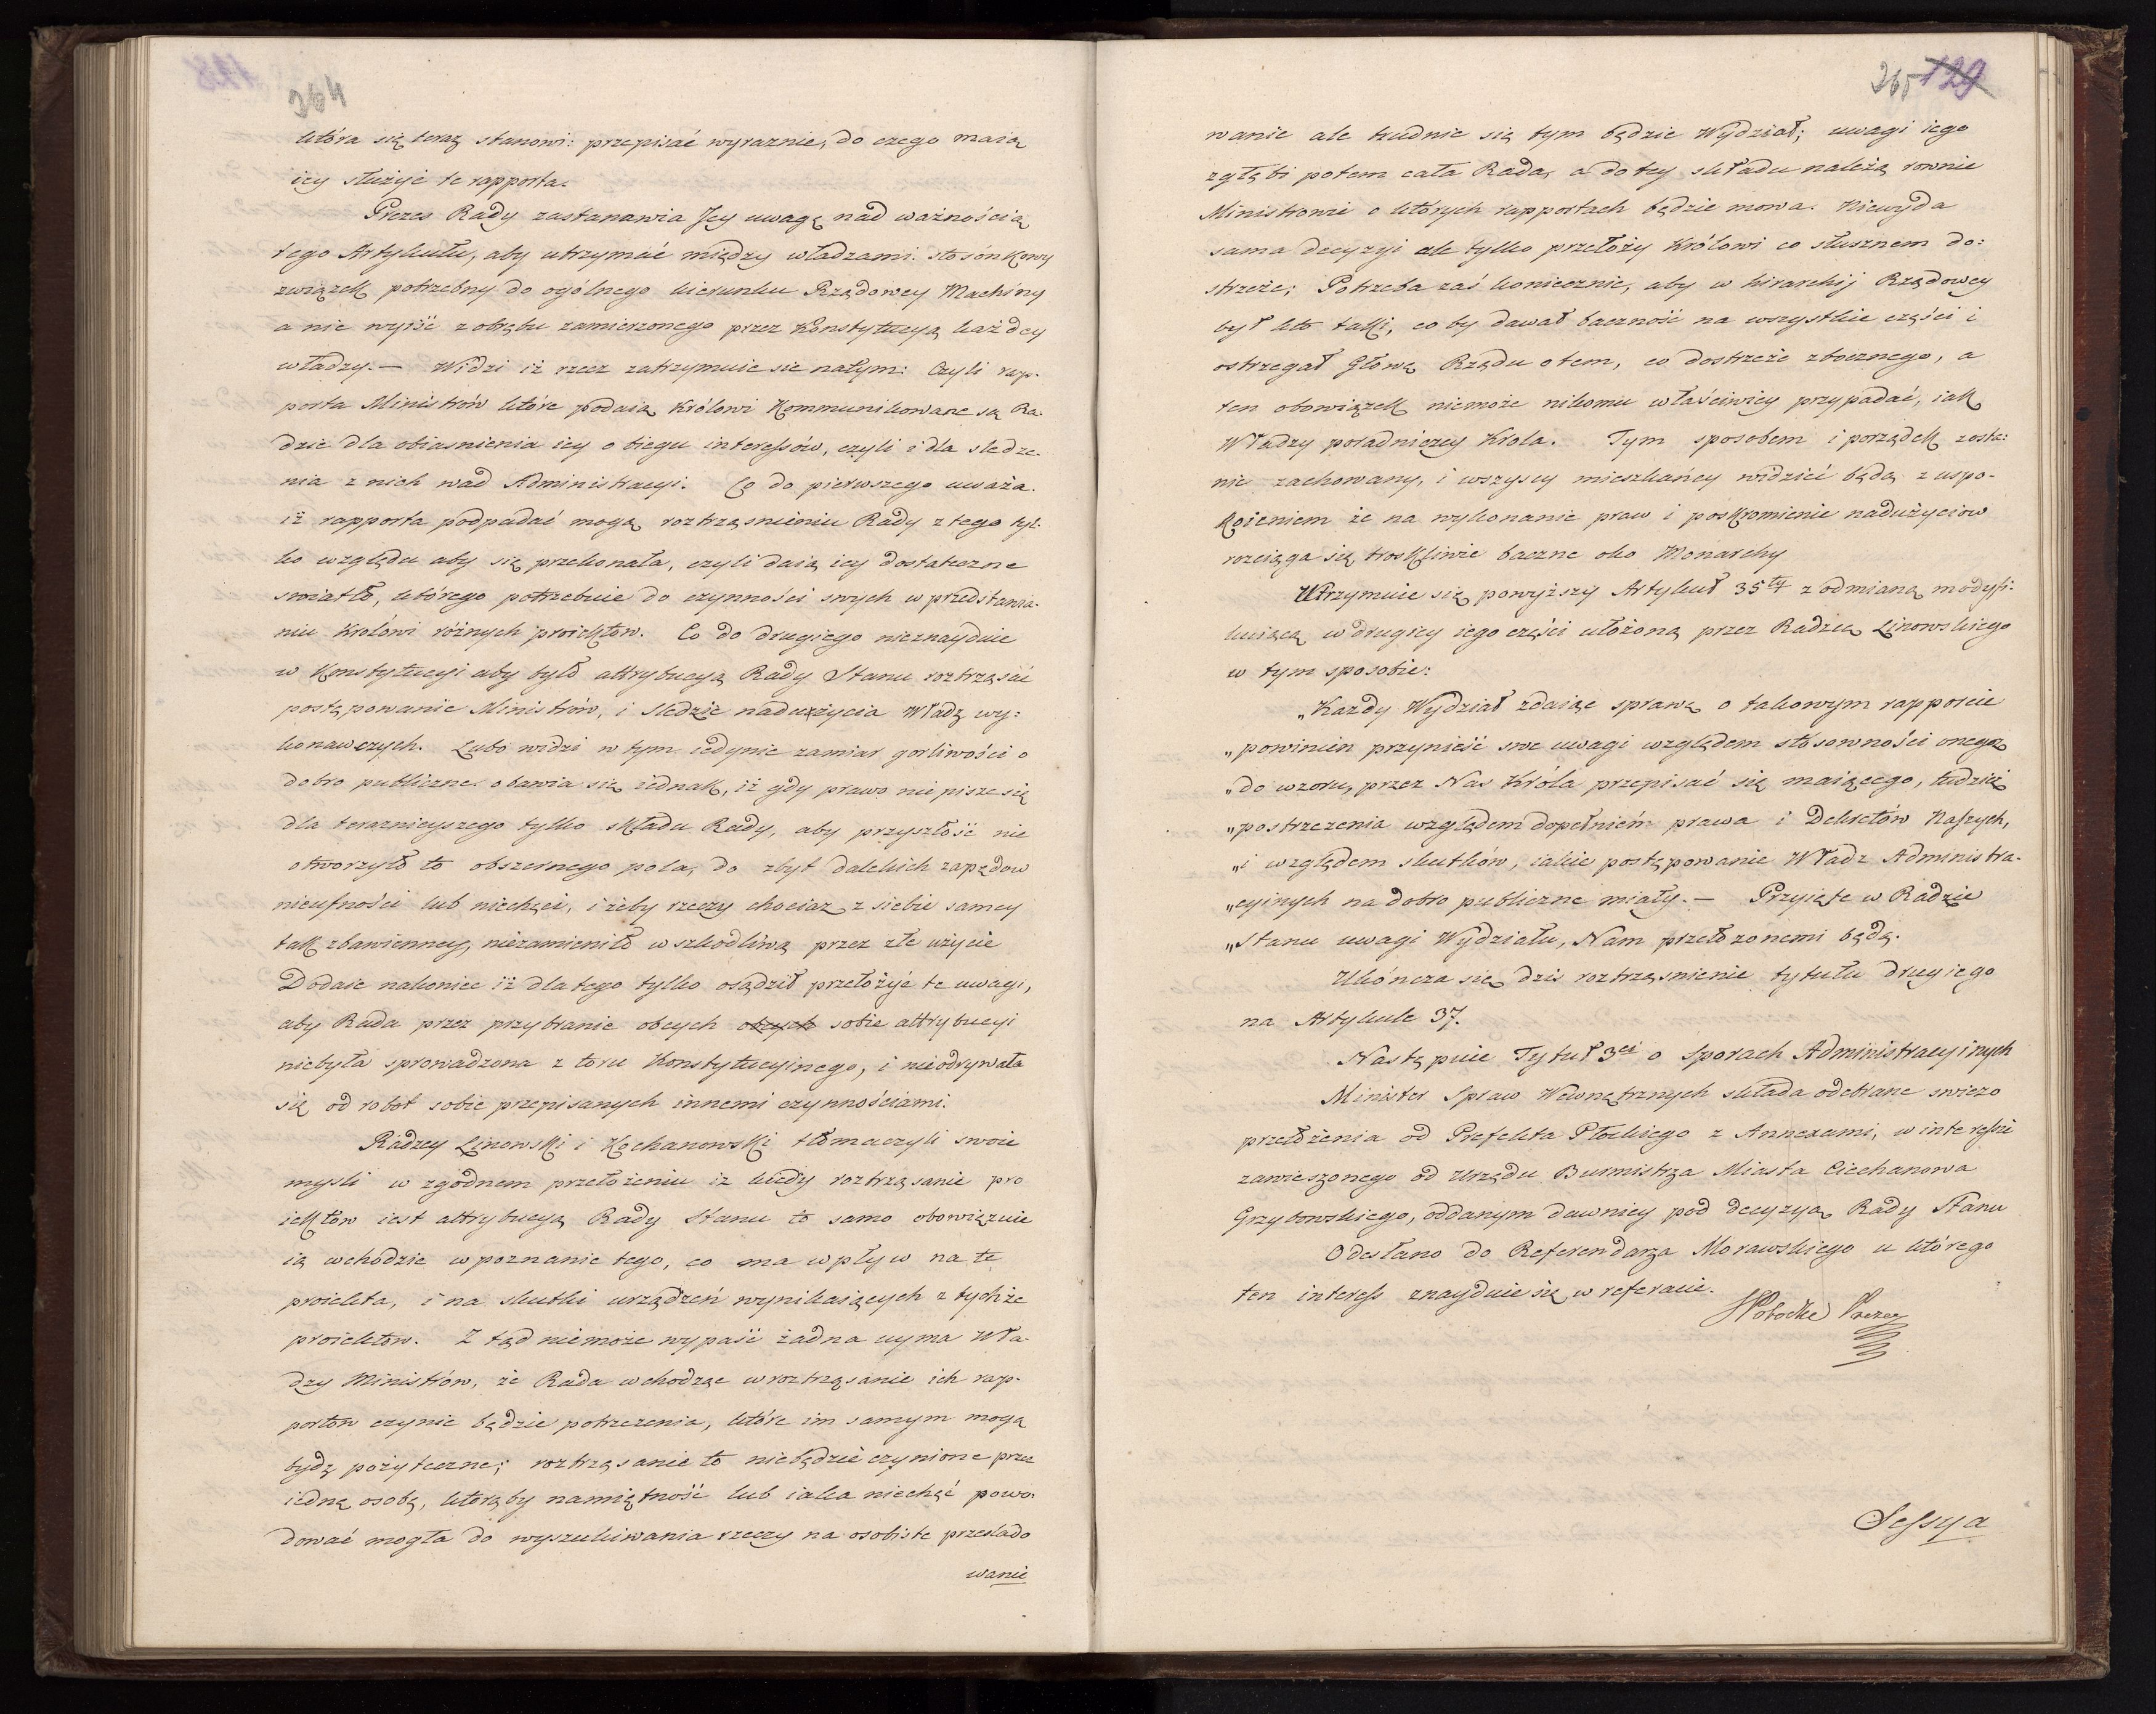 264
która się teraz stanowi: przepisać wyraznie, do czego maią
iey służyć te rapporta.
Prezes Rady zastanawia Jey uwagę nad ważnością
tego Artykułu, aby utrzymać między władzami stosónkowy
związek potrzebny do ogólnego kierunku Rządowey Machiny
a nie wyiść z obrębu zamierzonego przez Konstytucyą każdey
władzy. — Widzi iż rzecz zatrzymuie sie natym: Czyli rap-
porta Ministrów które podaią Królowi Kommunikowane są Ra-
dzie dla obiasnienia iey o biegu interessów, czyli i dla sledze-
nia z nich wad Administracyi. Co do pierwszego uważa.
iż rapporta podpadać mogą roztrząsnieniu Rady z tego tyl-
ko względu aby się przekonała, czyli daią iey dostateczne
swiatło, którego potrzebuie do czynności swych w przedstawia-
niu Krolówi różnych proiektow. Co do drugiego nieznayduie
w Konstytucyi aby było attrybucyą Rady Stanu roztrząsać
postępowanie Ministrów, i sledzić nadużycia Władz wy-
konawczych. Lubo widzi w tym iedynie zamiar gorliwości o
dobro publiczne. obawia się iednak, iż gdy prawo nie pisze się
dla teraznieyszego tylko składu Rady, aby przyszłość nie
otworzyło to obszernego pola, do zbyt dalekich zapędow
nieufności lub niechęci, i żeby rzeczy chociaz z siebie samey
tak zbawienney, niezamieniło w szkodliwą przez złe użycie
Dodaie nakoniec iż dla tego tylko osądził przełożyć te uwagi,
aby Rada przez przybranie obcych obcych sobie attrybucyi
niebyła sprowadzona z toru Konstytucyinego, i nieodrywała
się od robot sobie przepisanych innemi czynnościami.
Radzcy Linowski i Kochanowski tłomaczyli swoie
mysli w zgodnem przełożeniu iz kiedy roztrząsanie pro
iektow iest attrybucyą Rady Stanu to samo obowiązuie
ią wchodzie w poznanie tego, co ma wpływ na te
proiekta, i na skutki urządzeń wynikaiących z tychże
proiektow. Z tąd niemoże wypaść żadna uyma Wła-
dzy Ministrów, że Rada wchodząc w roztrząsanie ich rap-
portow czynic będzie potrzezenia, które im samym mogą
bydz pożyteczne; roztrząsanie to niebędzie czynione przez
iedną osobę, którąby namiętność lub iaka niechęć powo-
dować mogła do wyszukiwania rzeczy na osobiste przeslado
wanie
265 129
wanie ale trudnic się tym będzie Wydział; uwagi iego
zgłębi potem cała Rada, a do tey składu należą rownie
Ministrowie o których rapportach będzie mowa. Niewyda
sama decyzyi ale tylko przełoży Królowi co słusznem do-
strzeże; Potrzeba zaś koniecznie, aby w hirarchij Rządowey
był kto taki, co by dawał baczność na wszystkie części i
ostrzegał Głowę Rządu otem, co dostrzeże zbocznego, a
ten obowiązek niemoże nikomu właściwiey przypadać, iak
Władzy poradniczey Krola. Tym sposobem i porządek zosta-
nie zachowany, i wszyscy mieszkańcy widzieć będą z uspo-
koieniem że na wykonanie praw i poskromienie nadużyciow
rozciąga się troskliwie baczne oko Monarchy
Utrzymuie się powyższy Artykuł 35ty z odmianą modyfi-
kuiącą w drugiey iego części ułożoną przez Radzcę Linowskiego
w tym sposobie:
„Kazdy Wydział zdaiąc sprawę o takowym rapporcie
„powinien przynieść swe uwagi względem stosowności onego
„do wzoru, przez Nas Króla przepisać się maiącego, tudzież
„postrzezenia względem dopełnień prawa i Dekretów Naszych,
„i względem skutków, iakie postępowanie Władz Administra-
„cyinych na dobro publiczne miały. — Przyięte w Radzie
„Stanu uwagi Wydziału, Nam przełożonemi będą.
Ukóncza się dzis roztrząsnienie tytułu drugiego
na Artykule 37.
Następuie Tytuł 3ci o Sporach Administracyinych
Minister Spraw Wewnętrznych składa odebrane swiezo
przełożenia od Prefekta Płockiego z Annexami, w interessie
zawieszonego od Urzędu Burmistrza Miasta Ciechanowa
Grzybowskiego, oddanym dawniey pod decyzyą Rady Stanu
Odesłano do Referendarza Morawskiego u którego
ten interess znayduie się w referacie.
Potocki Prezes
Sessya